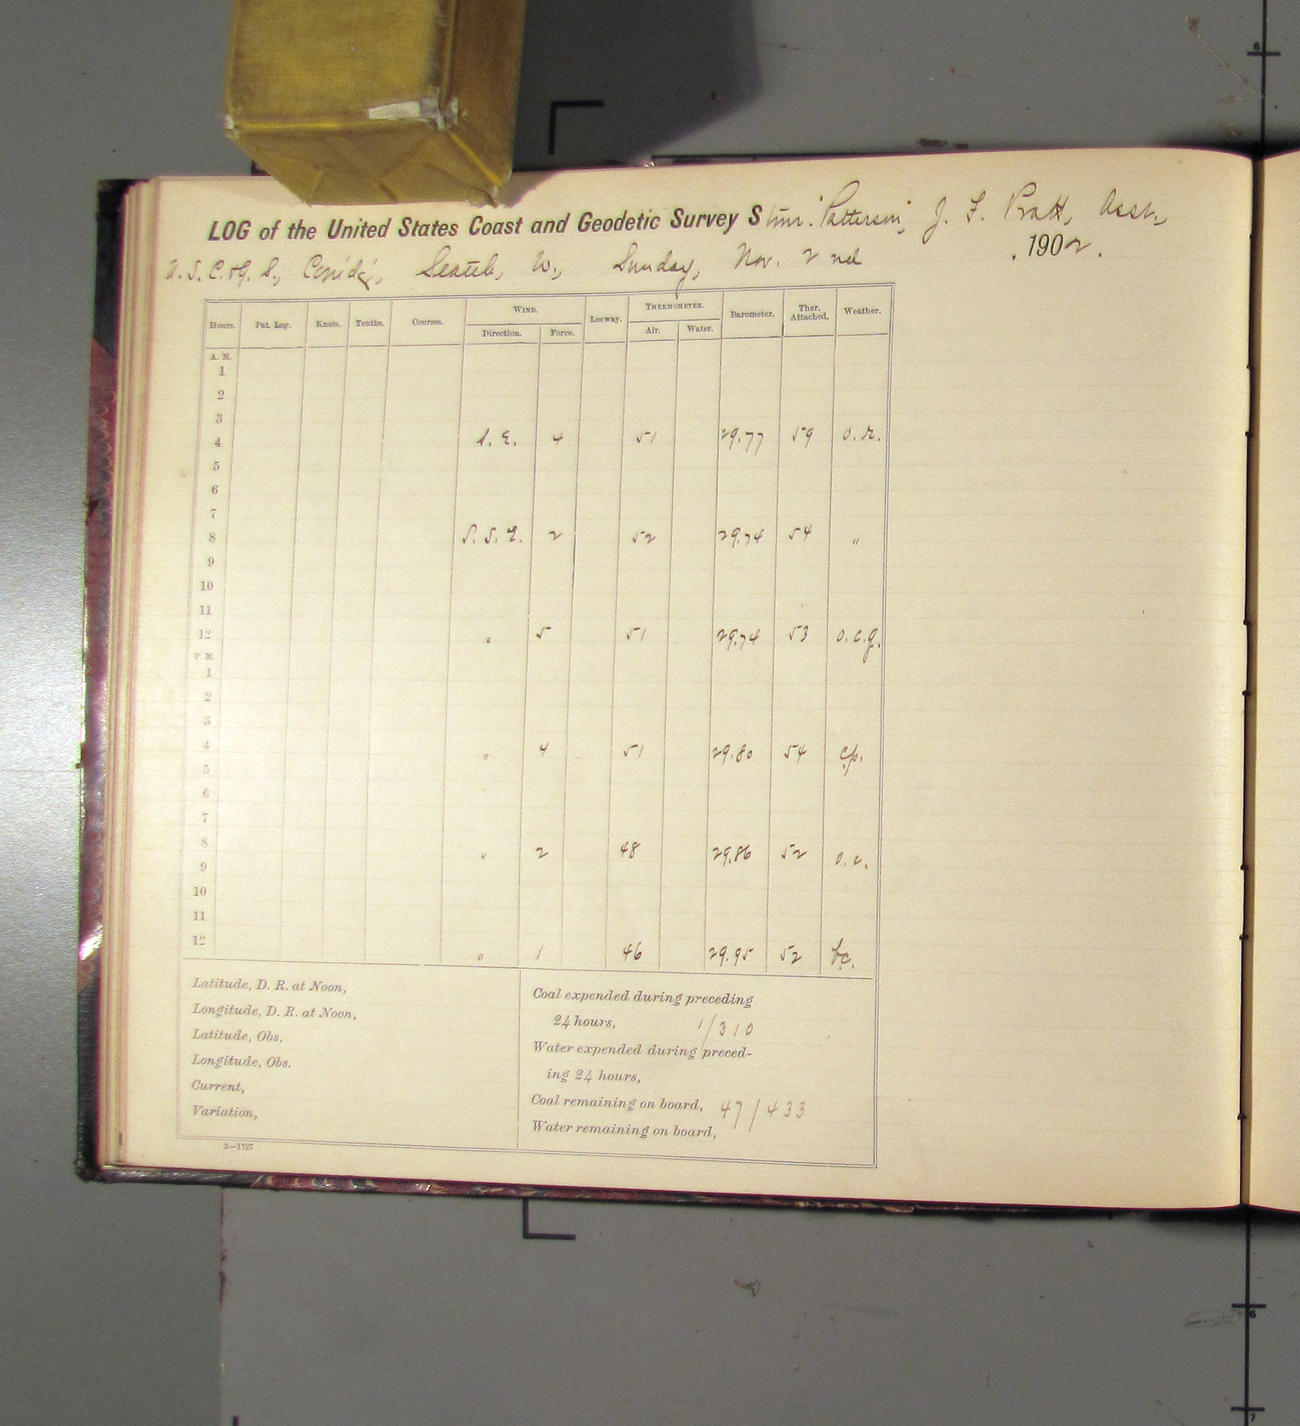 LOG of the United States Coast and Geodetic Survey Stmr. "Patterson", J. F. Pratt, Asst.,
U. S. C. & G. S., Comd'g, Seattle, W., Sunday, Nov. 2nd, 1902.
Hours. Pat. Log. Knots. Tenths. Courses. WIND. Leeway. THERMOMETER. Barometer. Ther. Attached. Weather.
Direction. Force. Air. Water.
A. M.
1
2
3
4 S. E. 4 51 29.77 59 o. r.
5
6
7
8 S. S. E. 2 52 29.74 54 "
9
10
11
12 " 5 51 29.74 53 o. c. g.
P. M.
1
2
3
4 " 4 51 29.80 54 c.p.
5
6
7
8 " 2 48 29.86 52 o. c.
9
10
11
12 " 1 46 29.95 52 bc.
Latitude, D. R. at Noon,
Longitude, D. R. at Noon,
Latitude, Obs.
Longitude, Obs.
Current,
Variation,
Coal expended during preceding
24 hours, 1/310
Water expended during preced-
ing 24 hours,
Coal remaining on board, 47/433
Water remaining on board,
2—1727
6
6
7